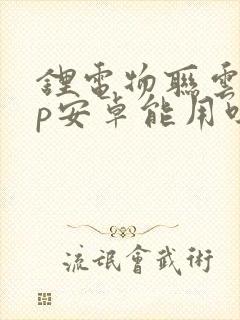 鋰電物聯雲
p安卓能用
流氓會武術